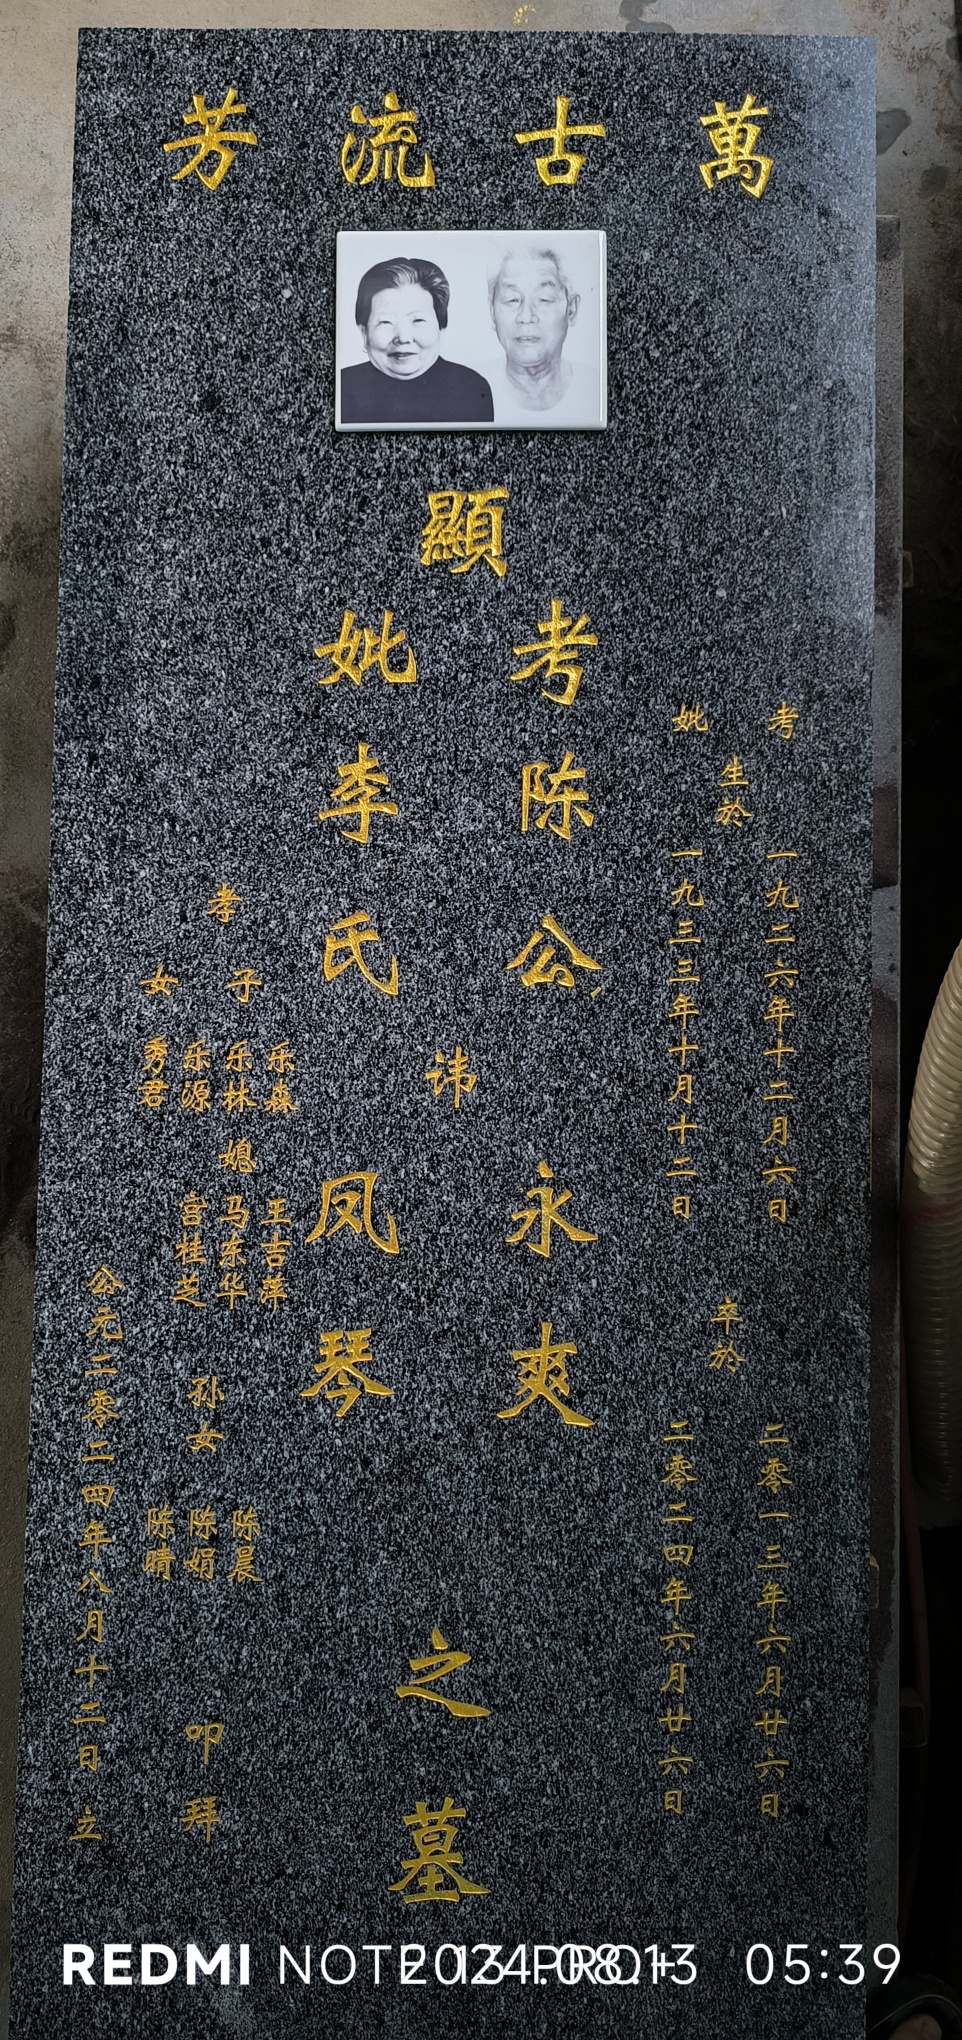 萬古流芳
顯
考陈公
妣李氏
讳
永爽
凤琴
之墓
考
妣
生於
一九二六年十二月六日
一九三三年十月十二日
卒於
二零一三年六月廿六日
二零二四年六月廿六日
孝
子
乐森
乐林
乐源
女
秀君
媳
王吉萍
马东华
宫桂芝
孙女
陈晨
陈娟
陈晴
叩拜
公元二零二四年八月十二日 立
REDMI NOTE 13 PRO+
2024.08.13 05:39